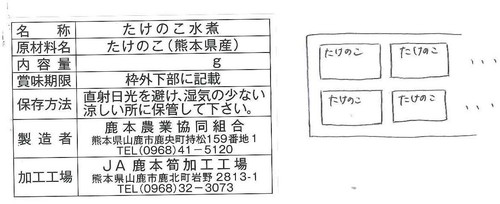 名称 たけのこ水煮
原材料名 たけのこ(熊本県産)
内容量 g
賞味期限 枠外下部に記載
保存方法 直射日光を避け、湿気の少ない
涼しい所に保管して下さい。
製造者 鹿本農業協同組合
熊本県山鹿市鹿央町持松159番地1
TEL(0968)41-5120
加工工場 JA鹿本筍加工工場
熊本県山鹿市鹿北町岩野2813-1
TEL(0968)32-3073
たけのこ たけのこ
たけのこ たけのこ